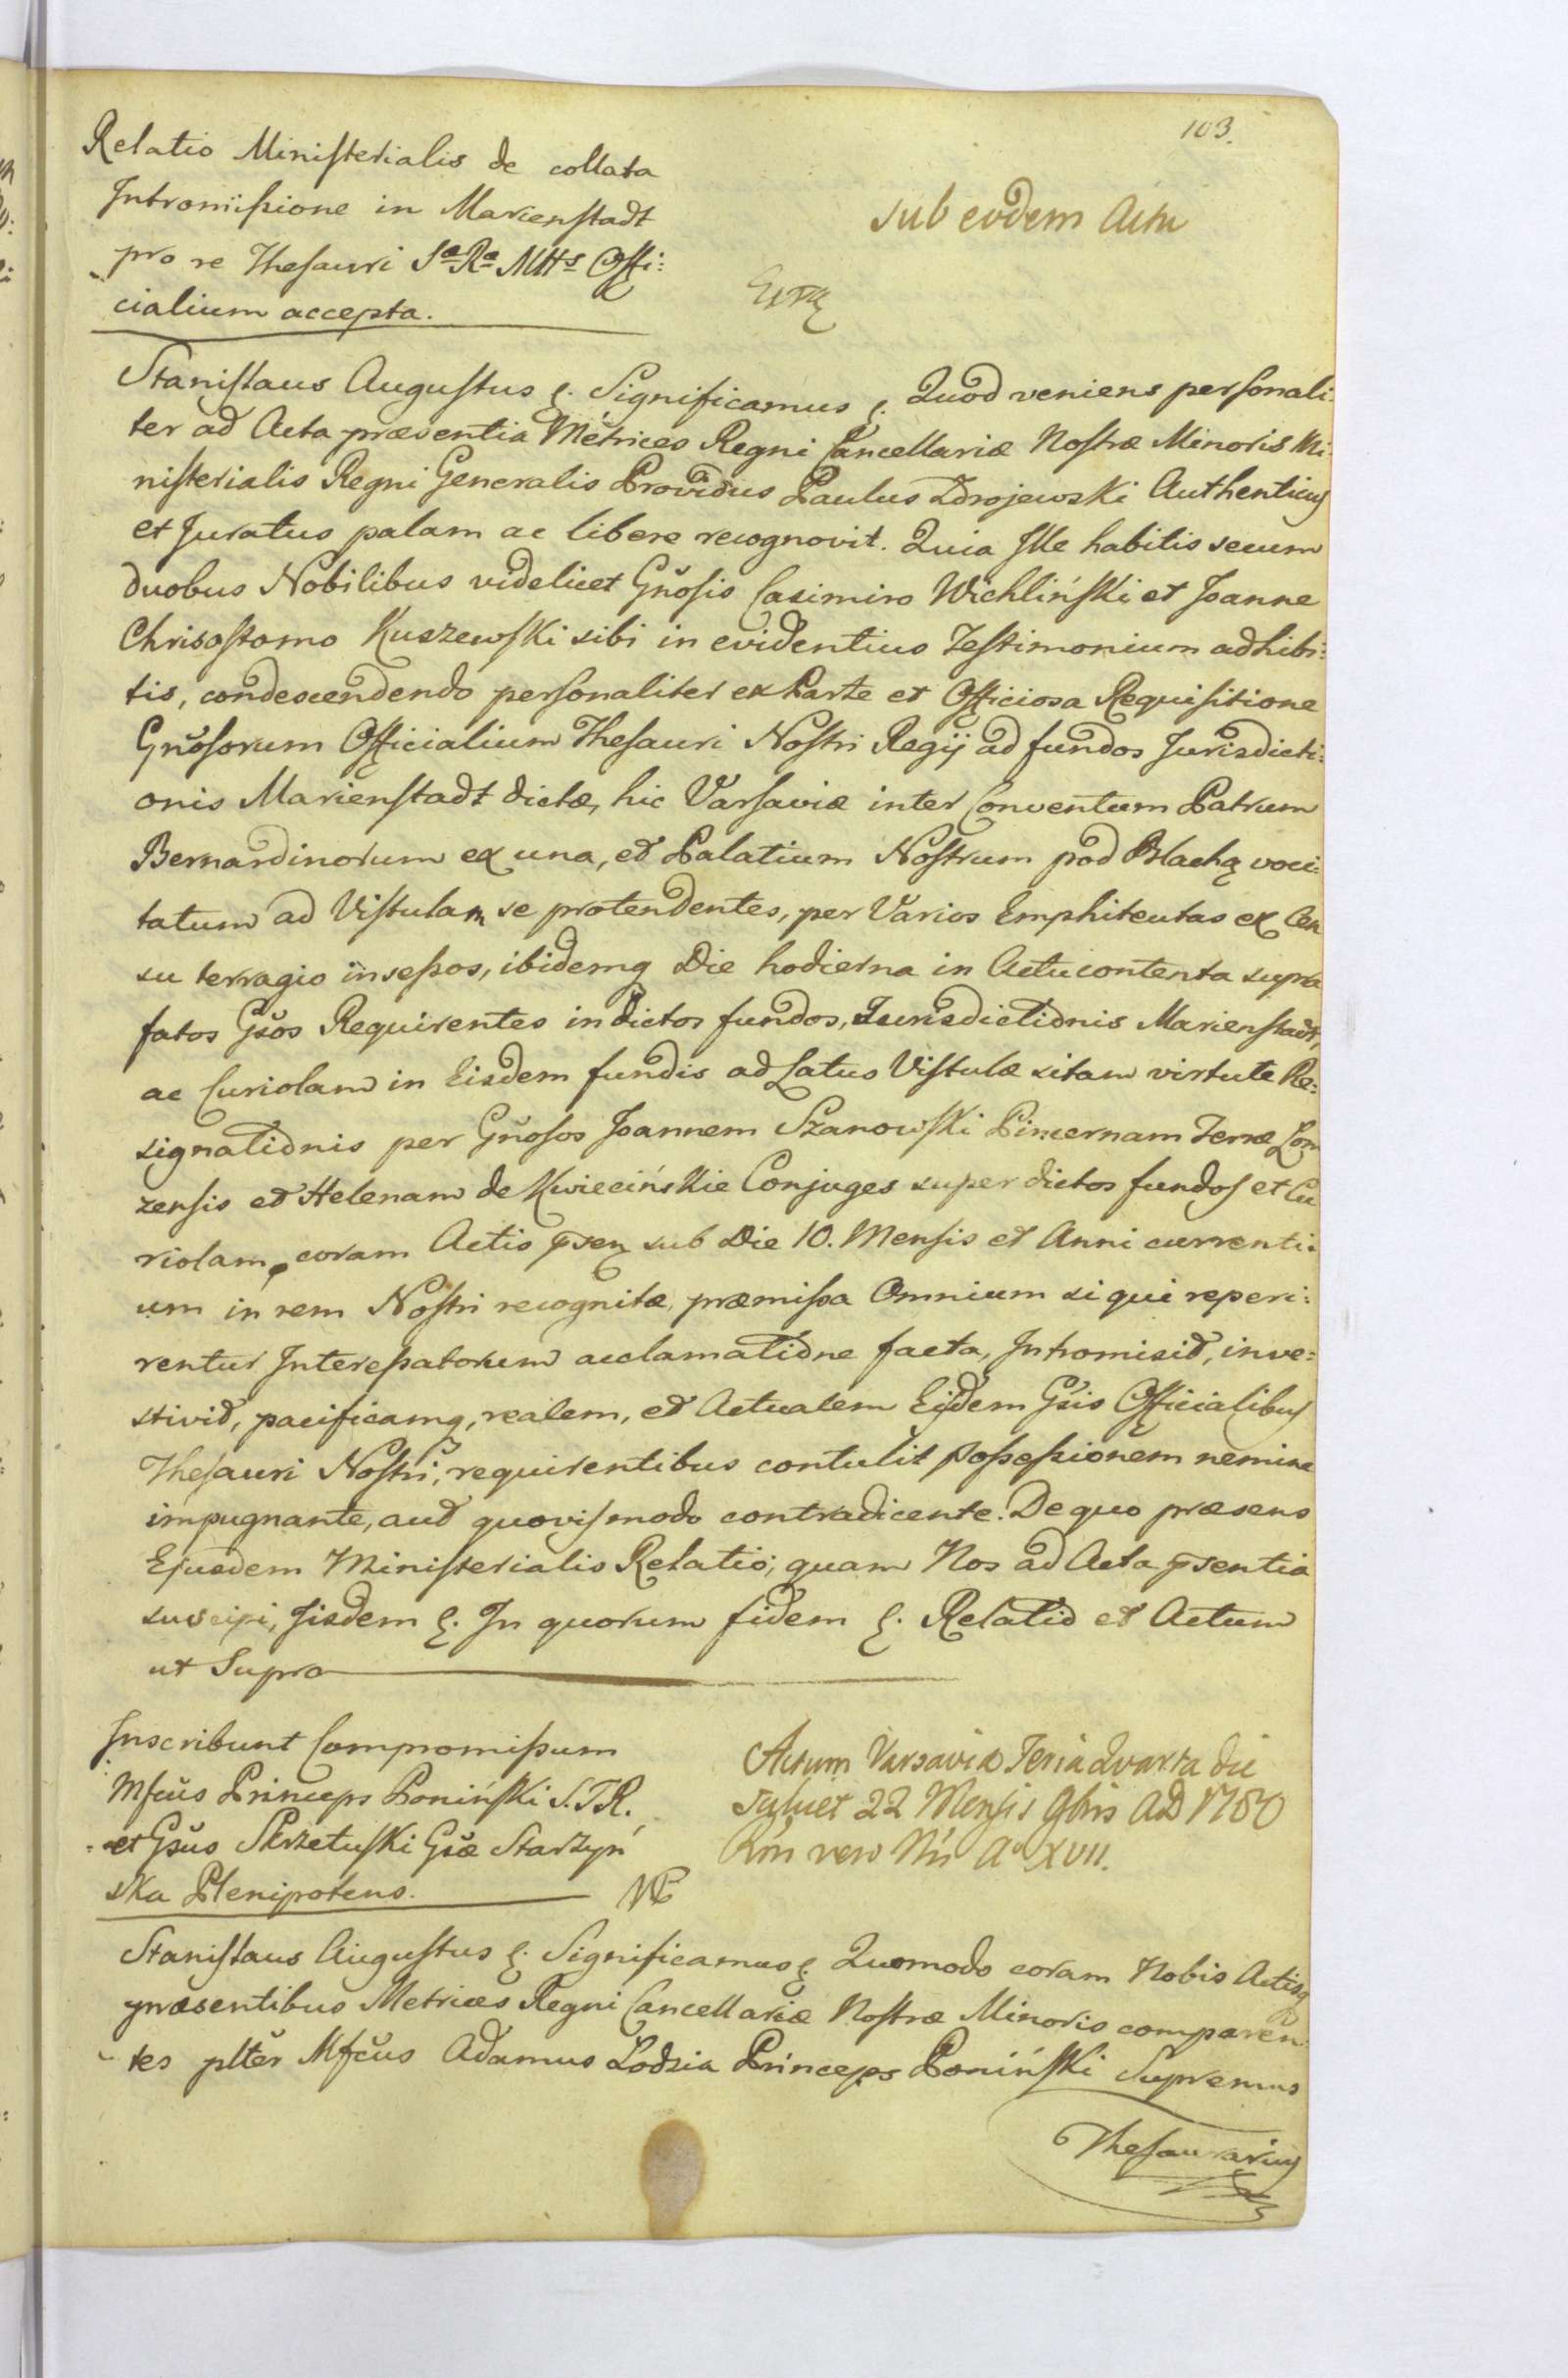 103.
Relatio Ministerialis de collata
Intromissione in Marienstadt
pro re Thesauri Sa Ra Mtts Offi:
cialium accepta.
sub eodem Actu
Stanislaus Augustus &. Significamus &. Quod veniens personali:
ter ad Acta præsentia Metrices Regni Cancellariæ Nostræ Minoris Mi:
nisterialis Regni Generalis Providus Paulus Zdrojewski Authenticus
et Juratus palam ac libere recognovit. Quia Ille habitis secum
duobus Nobilibus videlicet Gňosis Casimiro Wichliński et Joanne
Chrisostomo Kuszewski sibi in evidentius Testimonium adhibi:
tis, condescendendo personaliter ex Parte et Officiosa Requisitione
Gňosorum Officialium Thesauri Nostri Regij ad fundos Jurisdicti:
onis Marienstadt dictæ, hic Varsaviæ inter Conventum Patrum
Bernardinorum ex una, et Palatium Nostrum pod Blachą voci:
tatum ad Vistulam se protendentes, per Varios Emphiteutas ex Cen
su terragio insessos, ibidemq Die hodierna in Actu contenta supra
fatos Gsos Requirentes in dictos fundos, Jurisdictionis Marienstadt,
ac Curiolam in Eisdem fundis ad Latus Vistulæ sitam virtute Re:
signationis per Gňosos Joannem Szanowski Pincernam Terræ Lom
zensis et Helenam de Kwiecińskie Conjuges super dictos fundos et Cu
riolam, coram Actis psen sub Die 10. Mensis et Anni currenti:
um in rem Nostri recognitæ, præmissa Omnium si qui reperi:
rentur Interessatorum acclamatione facta, Intromisit, inve=
stivit, pacificamq, realem, et Actualem Eisdem Gsis Officialibus
Thesauri Nostri, requirentibus contulit possessionem nemine
impugnante, aut quovismodo contradicente. De quo præsens
Ejusdem Ministerialis Relatio, quam Nos ad Acta psentia
suscipi, Jisdem &. In quorum fidem &. Relatio et Actum
ut Supra
Inscribunt Compromissum
Mfcus Princeps Poniński S.T.R.
et Gsus Skrzetuski Gsæ Starzyń
ska Plenipotens.
Actum Varsaviæ Feria Quarta die
scilicet 22 Mensis 9bris AD 1780
Rńi vero Nri Ao XVII.
Stanislaus Augustus &. Significamus &. Quomodo coram Nobis Actisq
præsentibus Metrices Regni Cancellariæ Nostræ Minoris comparen
tes plter Mfcus Adamus Lodzia Princeps Poniński Supremus
Thesaurarius